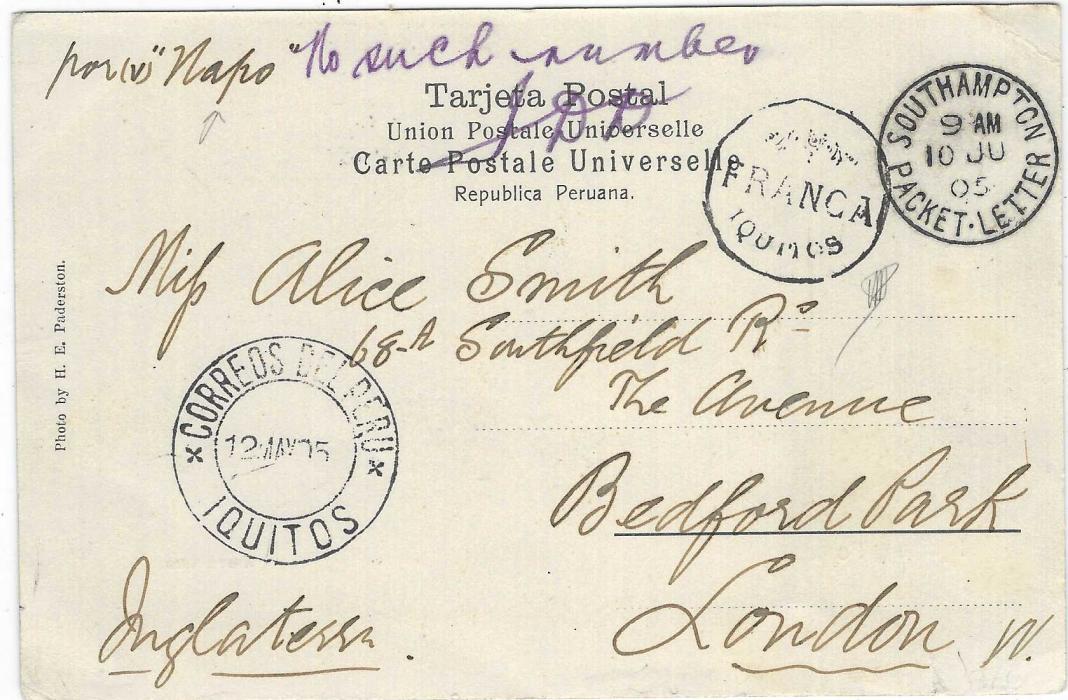 por (v) "Napo"
No such number
Tarjeta Postal
Union Postale Universelle
Carte Postale Universelle
Republica Peruana.
FRANCA
IQUITOS
SOUTHAMPTON
9 AM
10 JU
05
PACKET-LETTER
Miss Alice Smith
68-A Southfield Rd
The Avenue
Bedford Park
London W.
Inglaterra.
CORREOS DEL PERU
12 MAY 05
IQUITOS
Photo by H. E. Paderston.